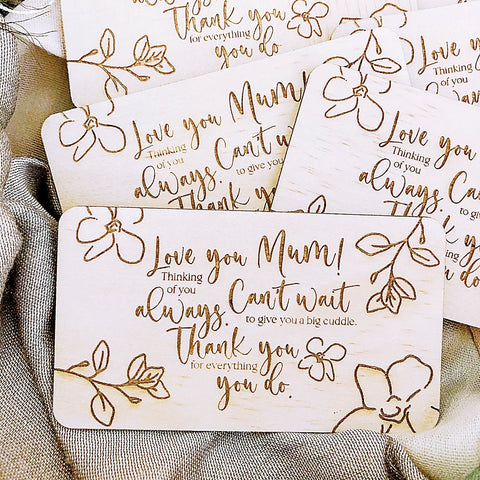 Thank you
for everything
you do.
Love you
Thinking
of you
Love you Mum!
Thinking
of you
always. Can't wait
to give you
Thank
Love you
Thinking
of you
always.
Love you Mum!
Thinking
of you
always. Can't wait
to give you a big cuddle.
Thank you
for everything
you do.